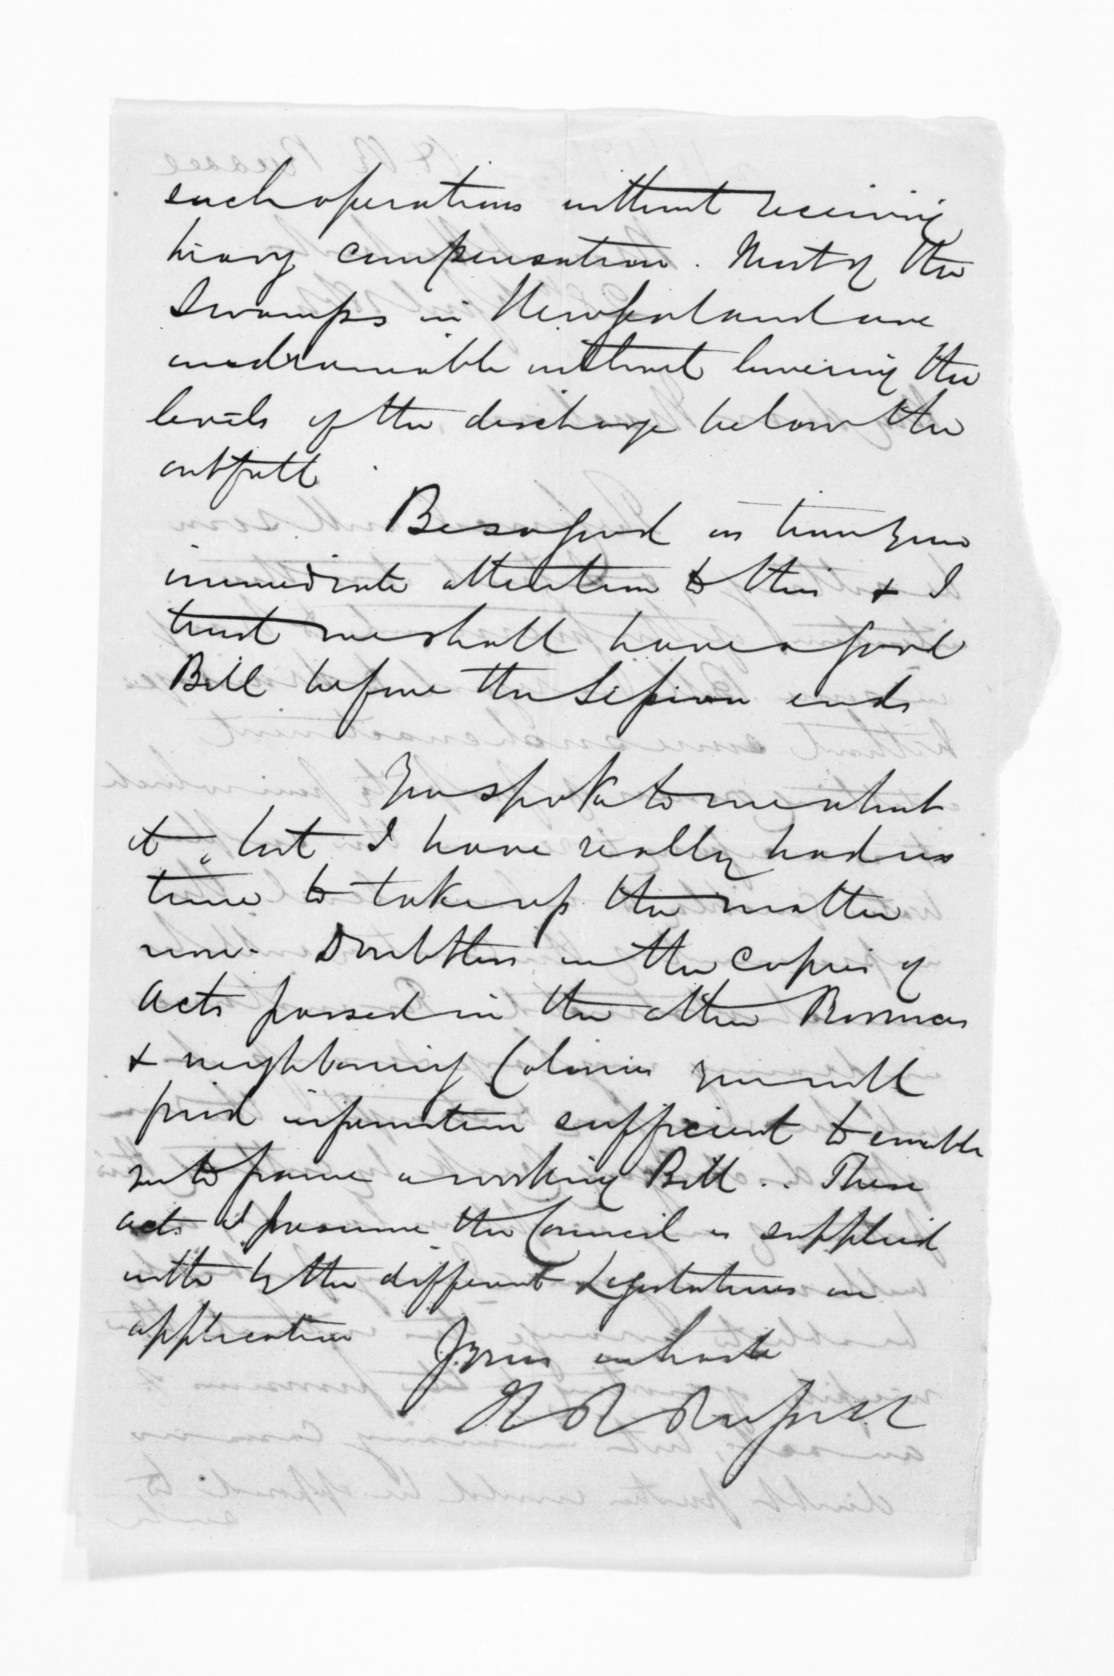 such operations without receiving
heavy compensation. Most of the
Swamps in are
undrainable without lowering the
levels of the discharge below the
outfall
Be so good as to give
immediate attention to this & I
trust we shall have a good
Bill before the Session ends
You spoke to me about
it, but I have really had no
time to take up the matter
now. Doubtless in the copies of
Acts passed in the other Provinces
& neighbouring Colonies you will
find information sufficient to enable
us to frame a working Bill.. These
acts I presume the Council is supplied
with by the different Legislatures on
application
Yrs in haste
H R Russell